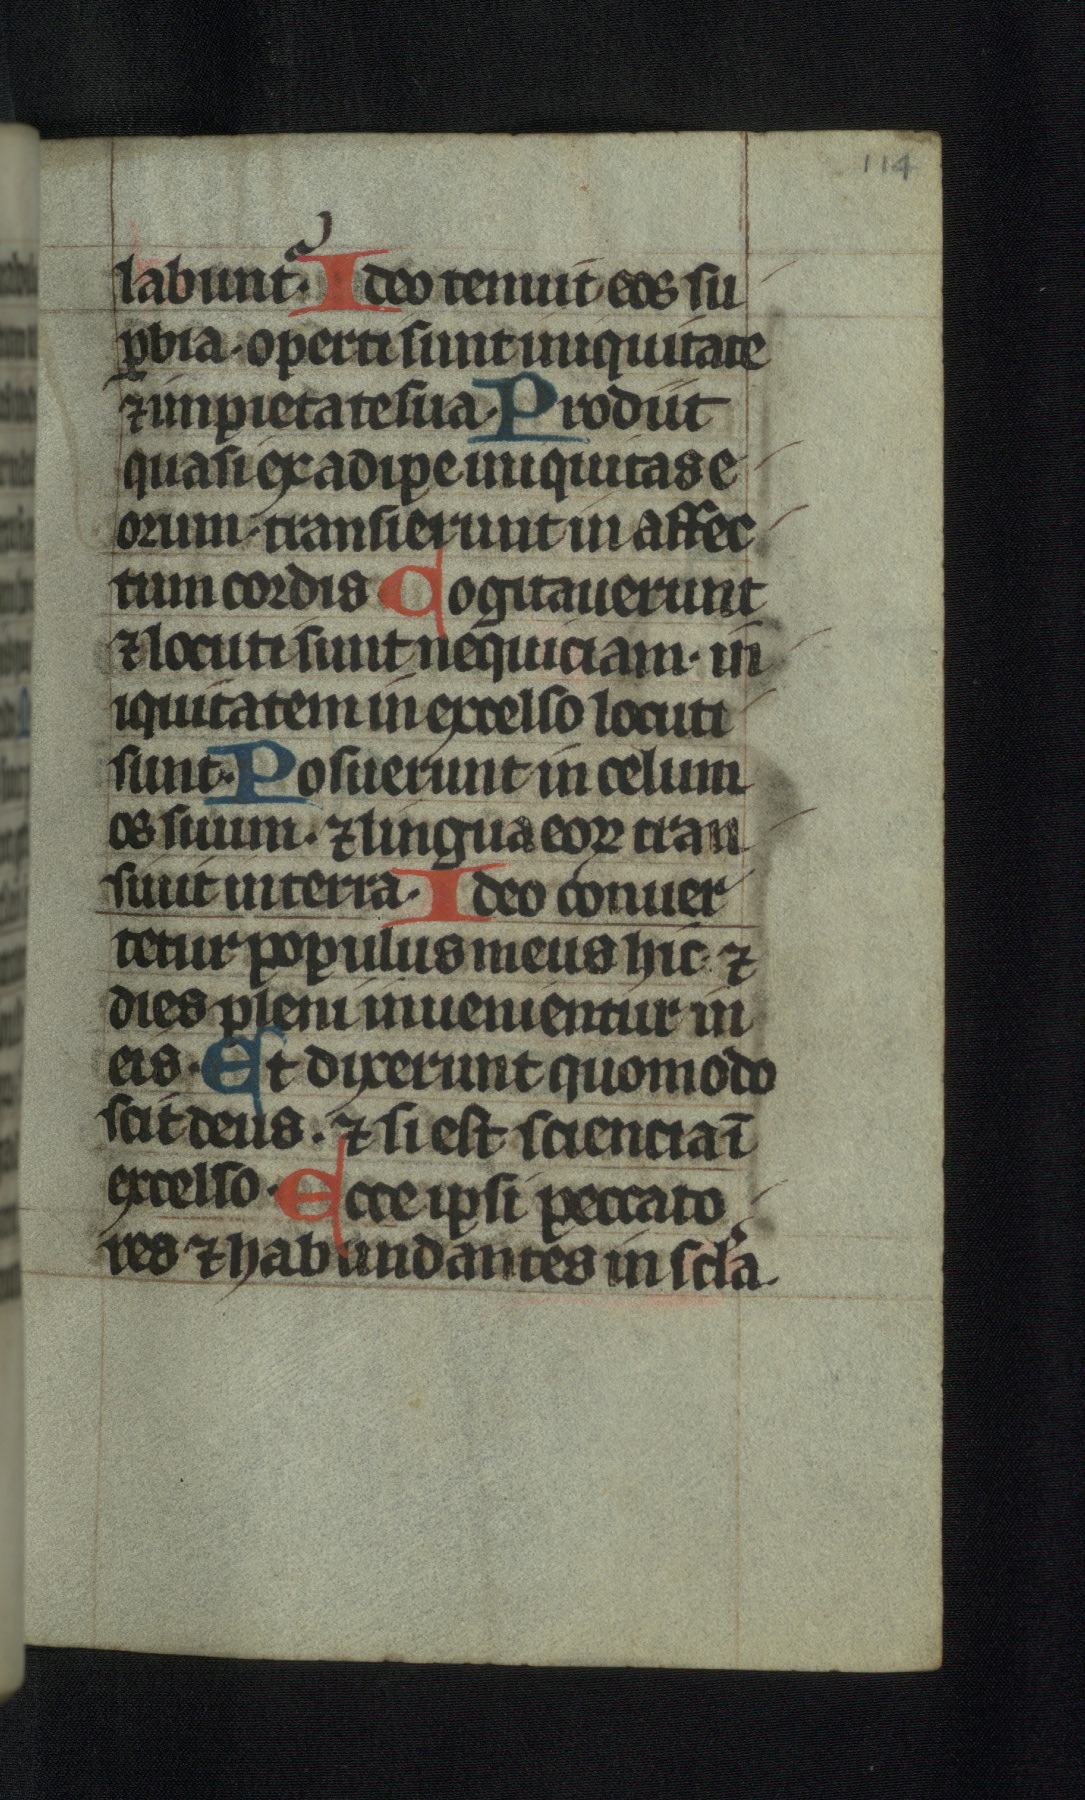 114
labunt᷑. Ideo tenuit eos su
ꝑbia. operti sunt iniquitate
⁊ impietate sua. Prodiit
quasi ex adipe iniquitas e
orum. transierunt in affec
tum cordis Cogitauerunt
⁊ locuti sunt nequiciam. in
iquitatem in excelso locuti
sunt. Posuerunt in celum
os suum. ⁊ lingua eoꝝ tran
siuit in terra. Ideo conuer
tetur populus meus hic. ⁊
dies pleni inuenientur in
eis. Et dixerunt quomodo
scit deus. ⁊ si est sciencia ī
excelso. Ecce ipsi peccato
res ⁊ habundantes in scl̓a.